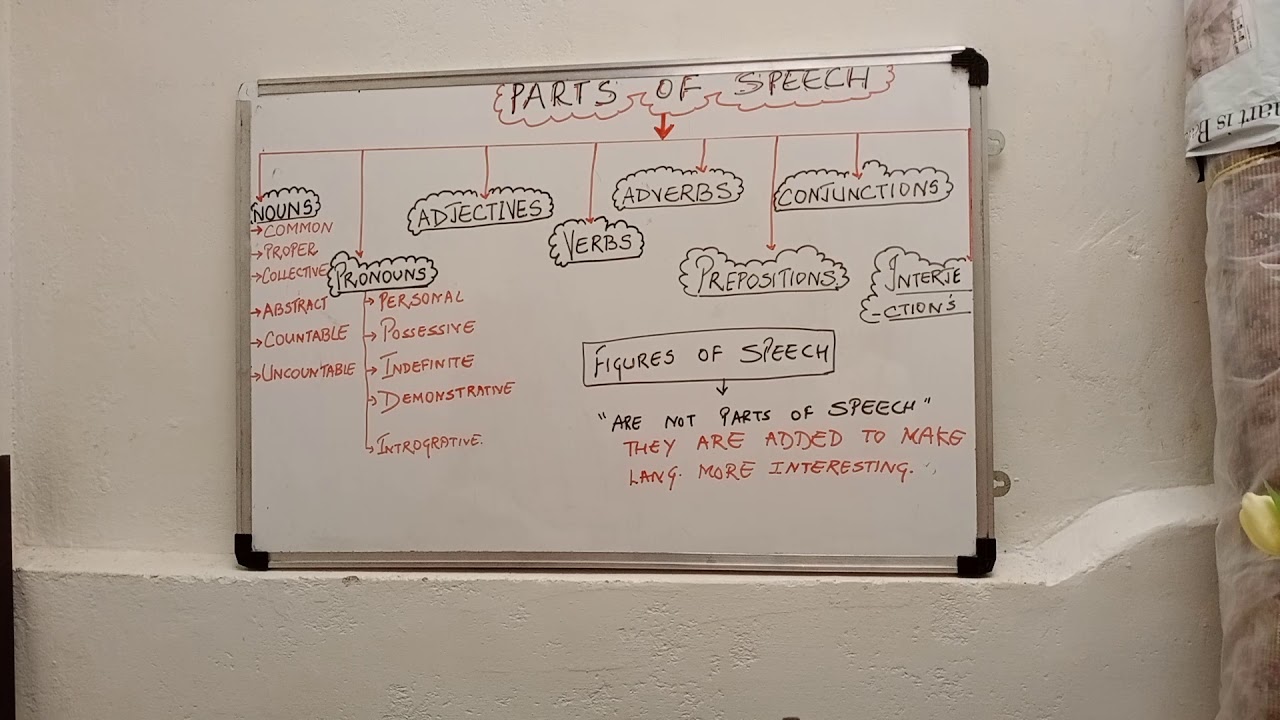 PARTS OF SPEECH
NOUNS
→ COMMON
→ PROPER
→ COLLECTIVE
→ ABSTRACT
→ COUNTABLE
→ UNCOUNTABLE
PRONOUNS
→ PERSONAL
→ POSSESSIVE
→ INDEFINITE
→ DEMONSTRATIVE
→ INTROGRATIVE.
ADJECTIVES
VERBS
ADVERBS
PREPOSITIONS
CONJUNCTIONS
INTERJE
-CTION'S
FIGURES OF SPEECH
"ARE NOT PARTS OF SPEECH"
THEY ARE ADDED TO MAKE
LANG. MORE INTERESTING.